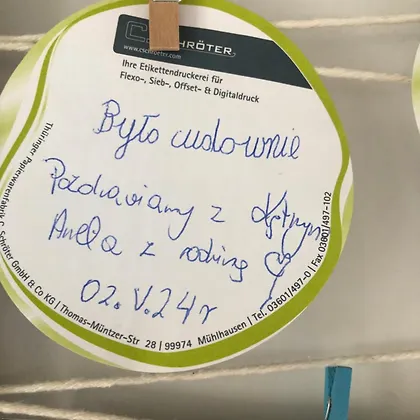 C. SCHRÖTER.
www.cschroeter.com
Ihre Etikettendruckerei für
Flexo-, Sieb-, Offset- & Digitaldruck
Było cudownie
Pozdrawiamy z
Aniela z rodziną
02.V.24r
Thüringer Papierwarenfabrik C. Schröter GmbH & Co KG | Thomas-Müntzer-Str 28 | 99974 Mühlhausen | Tel. 03601/497-0 | Fax 03601/497-102